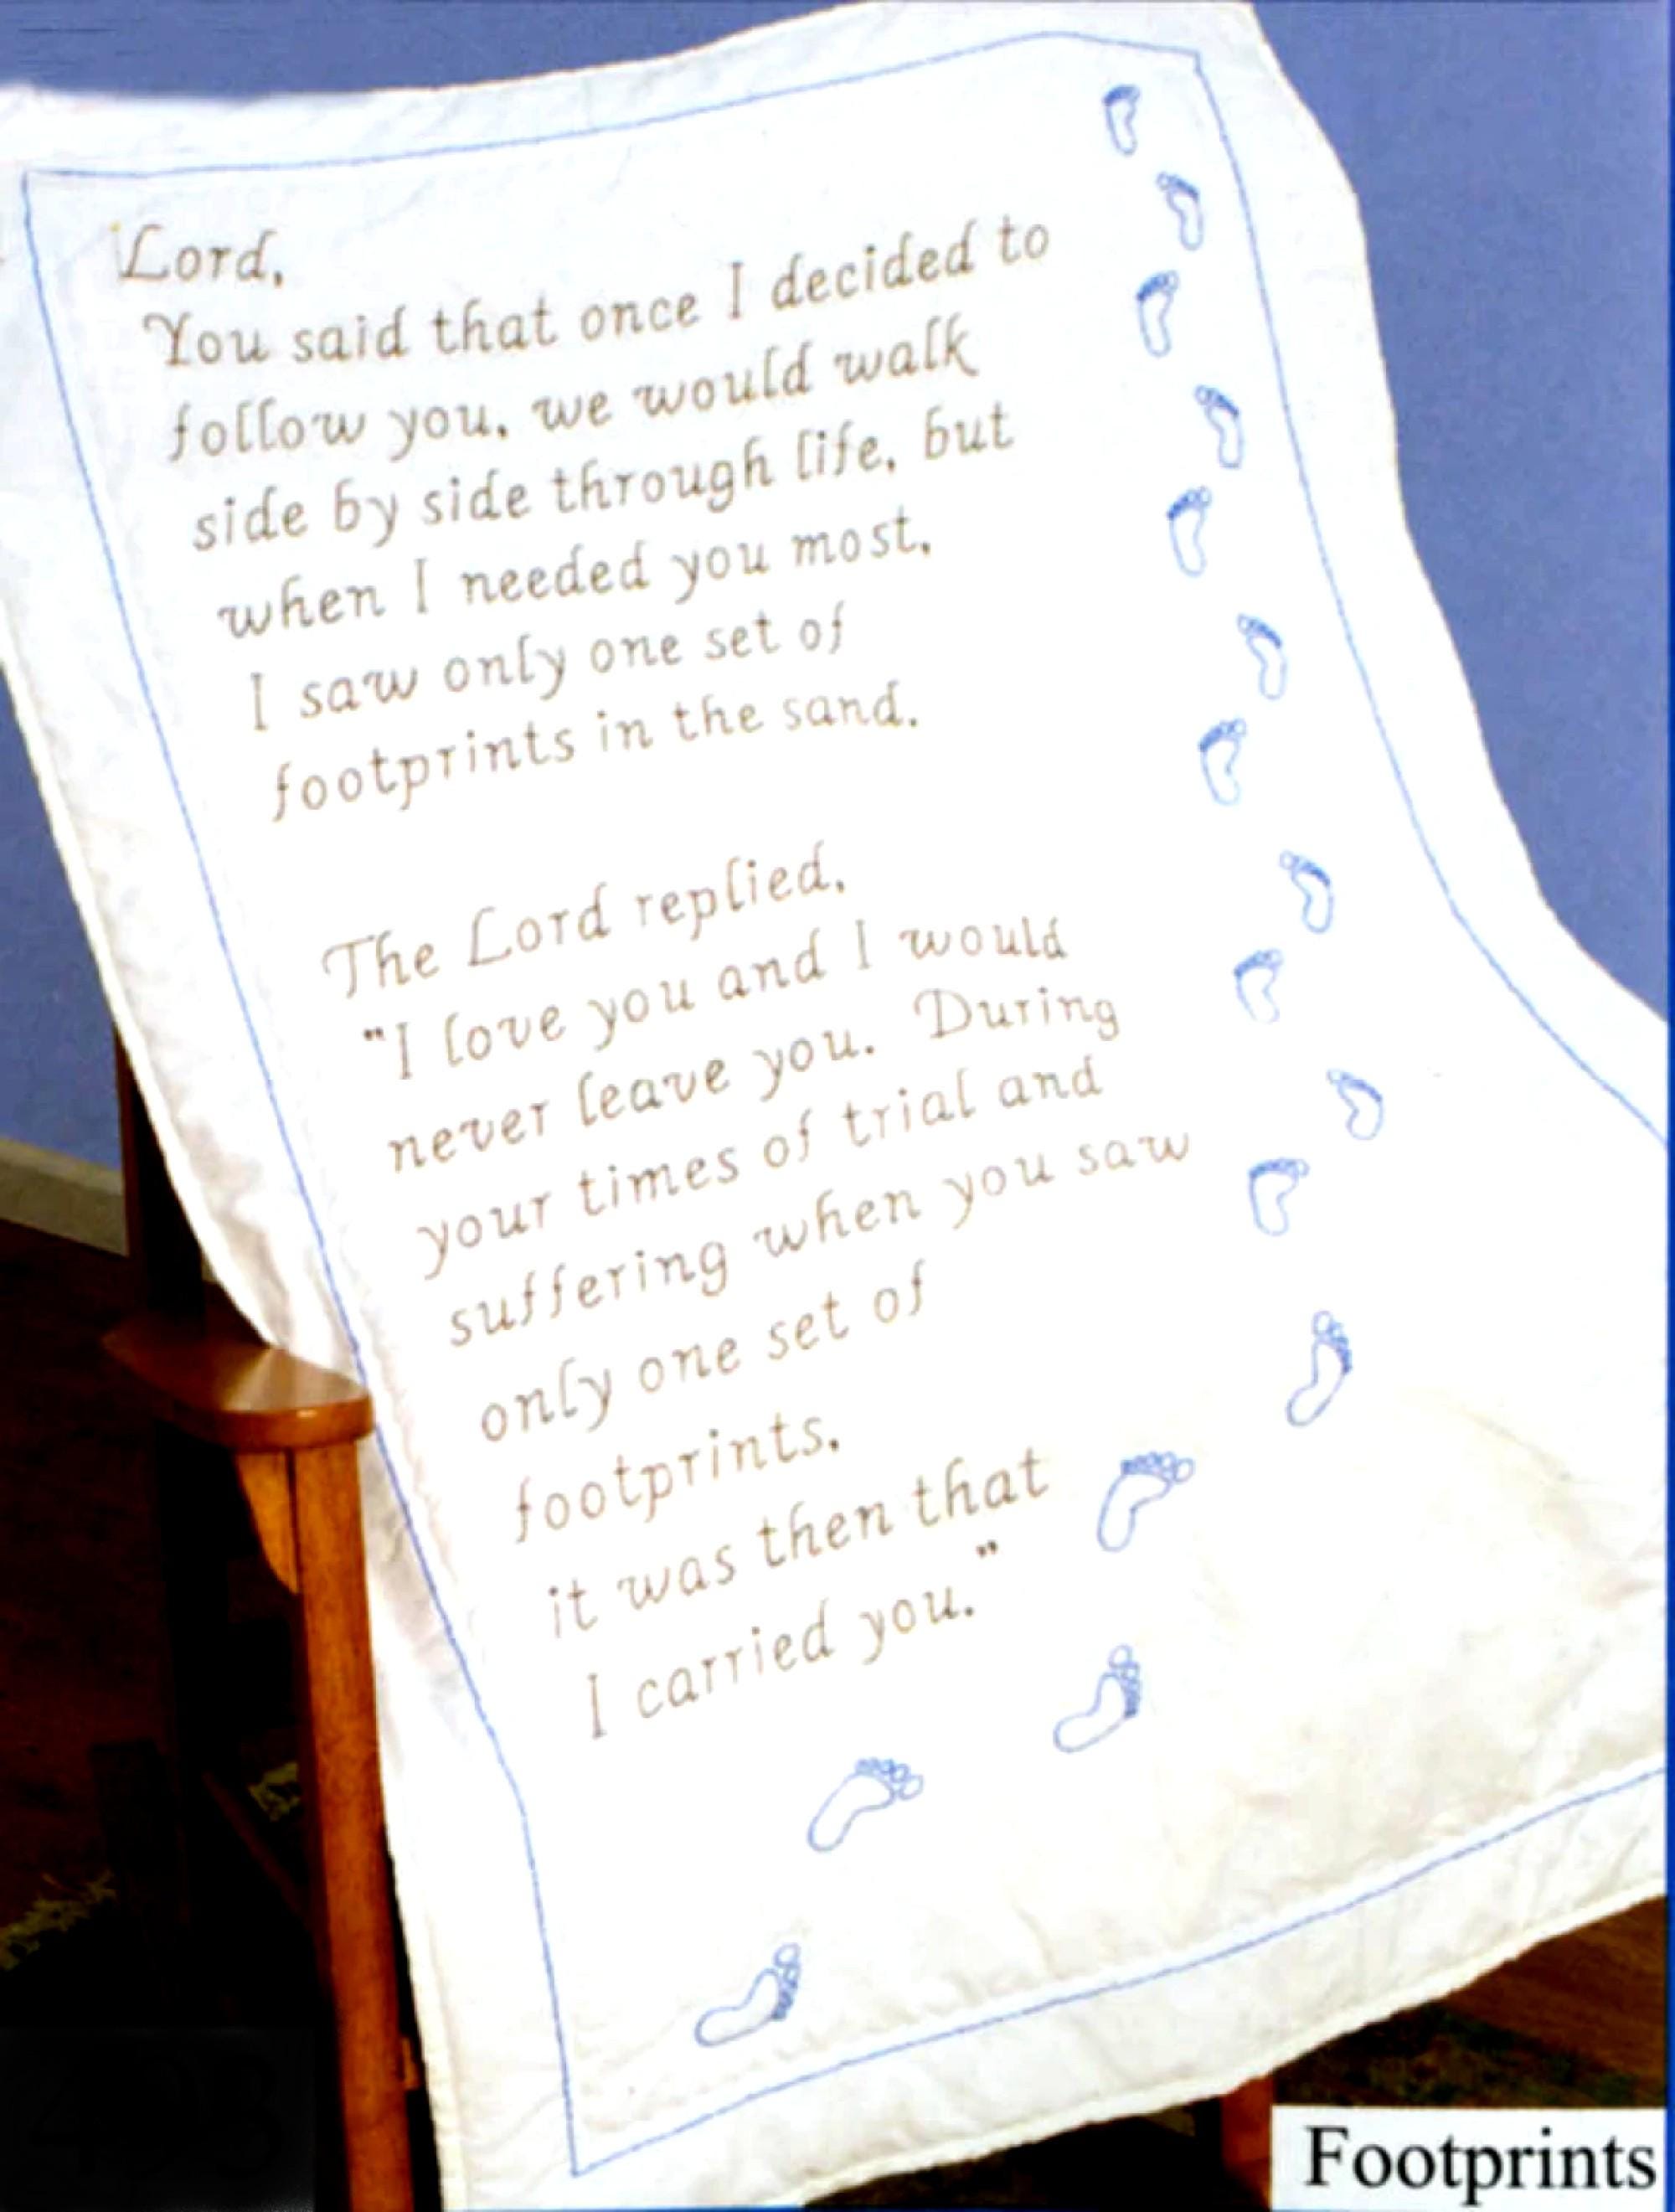 Lord,
You said that once I decided to
follow you, we would walk
side by side through life, but
when I needed you most,
I saw only one set of
footprints in the sand.
The Lord replied,
"I love you and I would
never leave you. During
your times of trial and
suffering when you saw
only one set of
footprints,
it was then that
I carried you."
Footprints